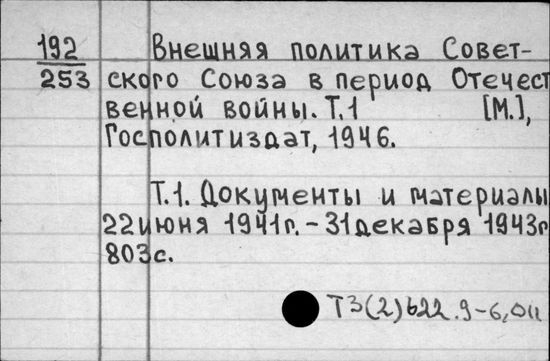 192 Внешняя политика Совет-
253 ского Союза в период Отечест
венной войны. Т.1 [М.],
Госполитиздат, 1946.
Т.1. Документы и материалы
22 июня 1941г. – 31 декабря 1943г
803с.
Т3(2)622.9-6,011